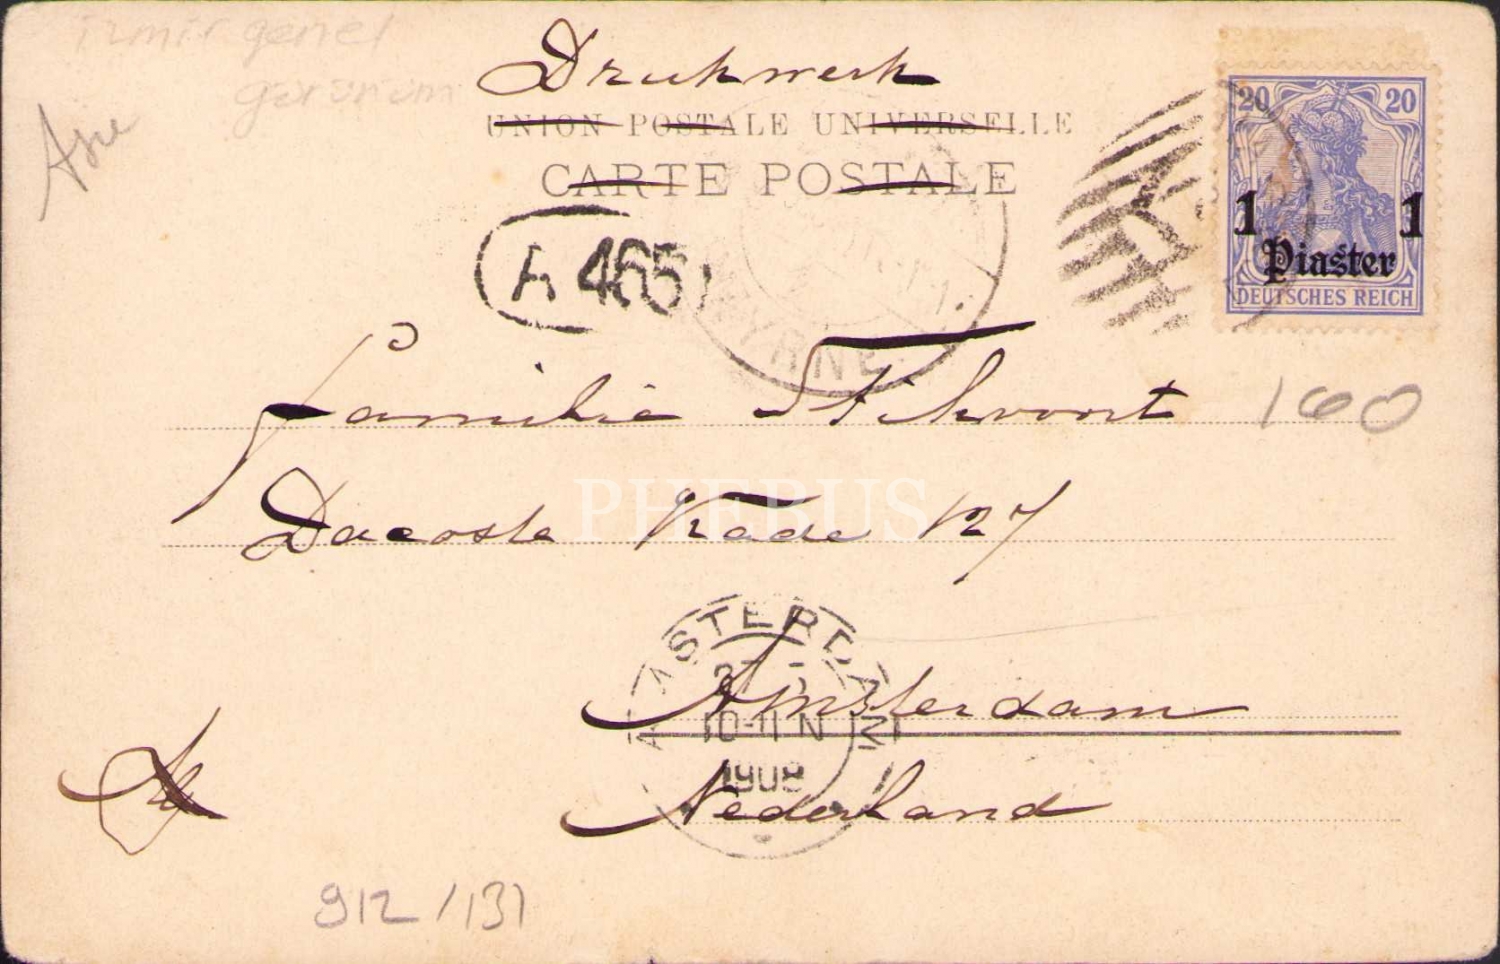 izmir genel
Drukwerk
UNION POSTALE UNIVERSELLE
CARTE POSTALE
A 465
SMYRNE
20 20
1 1
Piaster
DEUTSCHES REICH
Familie Stikvoort
160
Dacosta Kade 127
PHEBUS
AMSTERDAM
10-11 N
1908
Amsterdam
Nederland
912/131